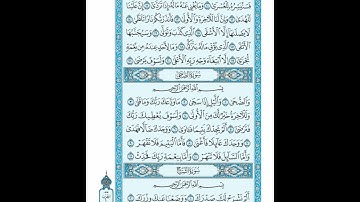 فَسَنُيَسِّرُهُۥ لِلْعُسْرَىٰ ١٠ وَمَا يُغْنِى عَنْهُ مَالُهُۥٓ إِذَا تَرَدَّىٰٓ ١١ إِنَّ عَلَيْنَا
لَلْهُدَىٰ ١٢ وَإِنَّ لَنَا لَلْـَٔاخِرَةَ وَٱلْأُولَىٰ ١٣ فَأَنذَرْتُكُمْ نَارًا تَلَظَّىٰ ١٤
لَا يَصْلَىٰهَآ إِلَّا ٱلْأَشْقَى ١٥ ٱلَّذِى كَذَّبَ وَتَوَلَّىٰ ١٦ وَسَيُجَنَّبُهَا
ٱلْأَتْقَى ١٧ ٱلَّذِى يُؤْتِى مَالَهُۥ يَتَزَكَّىٰ ١٨ وَمَا لِأَحَدٍ عِندَهُۥ مِن نِّعْمَةٍ
تُجْزَىٰٓ ١٩ إِلَّا ٱبْتِغَآءَ وَجْهِ رَبِّهِ ٱلْأَعْلَىٰ ٢٠ وَلَسَوْفَ يَرْضَىٰ ٢١
سُورَةُ الضُّحَى
بِسْمِ ٱللَّهِ ٱلرَّحْمَٰنِ ٱلرَّحِيمِ
وَٱلضُّحَىٰ ١ وَٱلَّيْلِ إِذَا سَجَىٰ ٢ مَا وَدَّعَكَ رَبُّكَ وَمَا قَلَىٰ ٣
وَلَلْـَٔاخِرَةُ خَيْرٌ لَّكَ مِنَ ٱلْأُولَىٰ ٤ وَلَسَوْفَ يُعْطِيكَ رَبُّكَ
فَتَرْضَىٰٓ ٥ أَلَمْ يَجِدْكَ يَتِيمًا فَـَٔاوَىٰ ٦ وَوَجَدَكَ ضَآلًّا فَهَدَىٰ
٧ وَوَجَدَكَ عَآئِلًا فَأَغْنَىٰ ٨ فَأَمَّا ٱلْيَتِيمَ فَلَا تَقْهَرْ ٩
وَأَمَّا ٱلسَّآئِلَ فَلَا تَنْهَرْ ١٠ وَأَمَّا بِنِعْمَةِ رَبِّكَ فَحَدِّثْ ١١
سُورَةُ الشَّرْحِ
بِسْمِ ٱللَّهِ ٱلرَّحْمَٰنِ ٱلرَّحِيمِ
أَلَمْ نَشْرَحْ لَكَ صَدْرَكَ ١ وَوَضَعْنَا عَنكَ وِزْرَكَ ٢